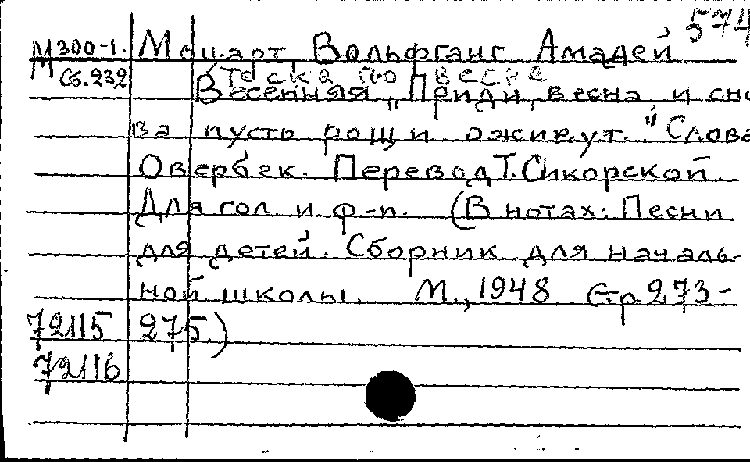 574
М300-1. Моцарт, Вольфганг Амадей
М Сб.232 Тоска по весне
Весенняя „Приди, весна и сно
ва пусть рощи оживут." Слова
Овербек. Перевод Т.Сикорской.
Для гол. и ф-п. (В нотах: Песни
для детей. Сборник для началь-
ной школы. М., 1948 Стр 273-
72115 275.)
72116